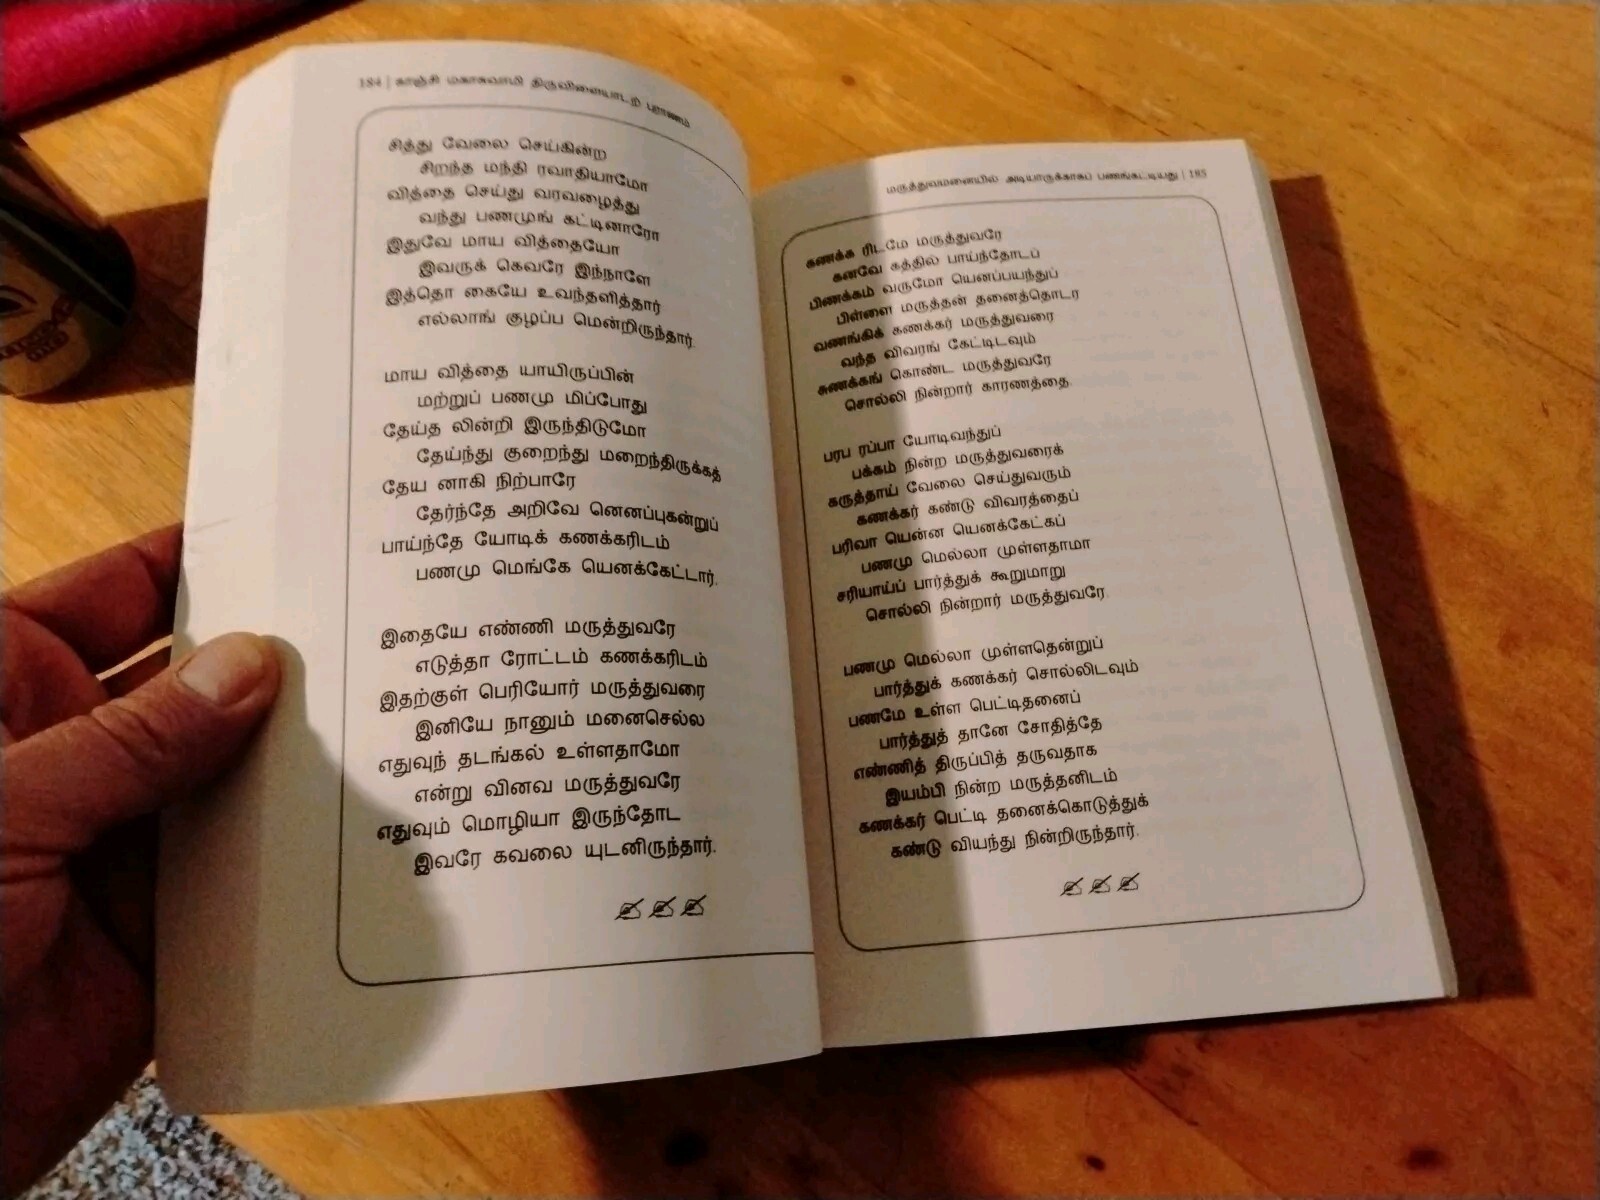 184 | காஞ்சி மகாசுவாமி திருவிளையாடற் புராணம்
சித்து வேலை செய்கின்ற
சிறந்த மந்தி ரவாதியாமோ
வித்தை செய்து வரவழைத்து
வந்து பணமுங் கட்டினாரோ
இதுவே மாய வித்தையோ
இவருக் கெவரே இந்நாளே
இத்தொ கையே உவந்தளித்தார்
எல்லாங் குழப்ப மென்றிருந்தார்.
மாய வித்தை யாயிருப்பின்
மற்றுப் பணமு மிப்போது
தேய்த லின்றி இருந்திடுமோ
தேய்ந்து குறைந்து மறைந்திருக்கத்
தேய னாகி நிற்பாரே
தேர்ந்தே அறிவே னெனப்புகன்றுப்
பாய்ந்தே யோடிக் கணக்கரிடம்
பணமு மெங்கே யெனக்கேட்டார்.
இதையே எண்ணி மருத்துவரே
எடுத்தா ரோட்டம் கணக்கரிடம்
இதற்குள் பெரியோர் மருத்துவரை
இனியே நானும் மனைசெல்ல
எதுவுந் தடங்கல் உள்ளதாமோ
என்று வினவ மருத்துவரே
எதுவும் மொழியா இருந்தோட
இவரே கவலை யுடனிருந்தார்.
மருத்துவமனையில் அடியாருக்காகப் பணங்கட்டியது | 185
கணக்க ரிடமே மருத்துவரே
கனவே கத்தில் பாய்ந்தோடப்
பிணக்கம் வருமோ யெனப்பயந்துப்
பிள்ளை மருத்தன் தனைத்தொடர
வணங்கிக் கணக்கர் மருத்துவரை
வந்த விவரங் கேட்டிடவும்
சுணக்கங் கொண்ட மருத்துவரே
சொல்லி நின்றார் காரணத்தை.
பரப ரப்பா யோடிவந்துப்
பக்கம் நின்ற மருத்துவரைக்
கருத்தாய் வேலை செய்துவரும்
கணக்கர் கண்டு விவரத்தைப்
பரிவா யென்ன யெனக்கேட்கப்
பணமு மெல்லா முள்ளதாமா
சரியாய்ப் பார்த்துக் கூறுமாறு
சொல்லி நின்றார் மருத்துவரே.
பணமு மெல்லா முள்ளதென்றுப்
பார்த்துக் கணக்கர் சொல்லிடவும்
பணமே உள்ள பெட்டிதனைப்
பார்த்துத் தானே சோதித்தே
எண்ணித் திருப்பித் தருவதாக
இயம்பி நின்ற மருத்தனிடம்
கணக்கர் பெட்டி தனைக்கொடுத்துக்
கண்டு வியந்து நின்றிருந்தார்.